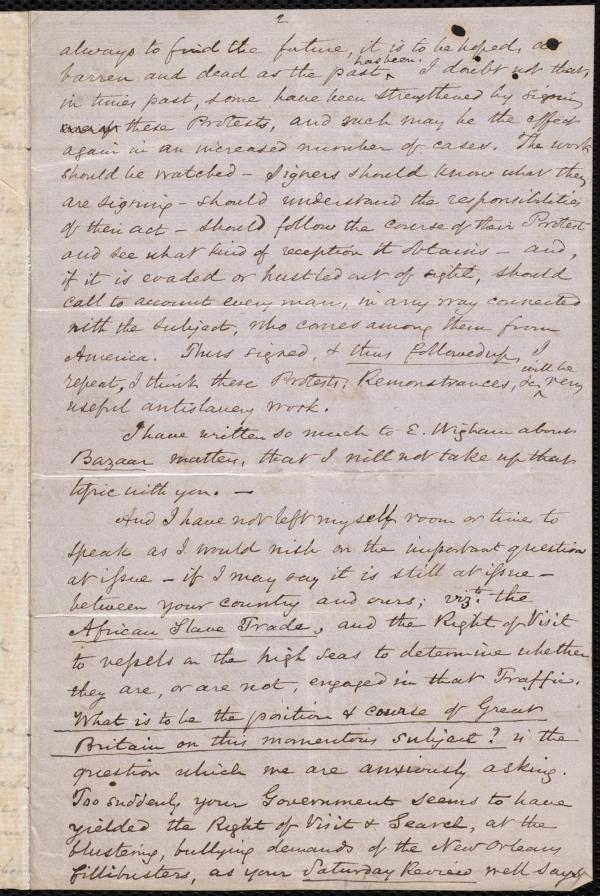 2
always to find the future, it is to be hoped, as
barren and dead as the past has been. I doubt not that,
in times past, some have been strengthened by signing
these Protests, and such may be the effect
again in an increased number of cases. The work
should be watched – signers should know what they
are signing – should understand the responsibilities
of their act – should follow the course of their Protest
and see what kind of reception it obtains – and,
if it is evaded or hustled out of sight, should
call to account every man, in any way connected
with the subject, who comes among them from
America. Thus signed, & thus followed up, I
repeat, I think these Protests, Remonstrances, &c. will be very
useful antislavery work.
I have written so much to E. Wigham about
Bazaar matters, that I will not take up that
topic with you. —
And I have not left myself room or time to
speak as I would wish on the important question
at issue – if I may say it is still at issue –
between your country and ours; vizt. the
African Slave Trade, and the Right of Visit
to vessels on the high seas to determine whether
they are, or are not, engaged in that Traffic.
What is to be the position & course of Great
Britain on this momentous subject? is the
question which we are anxiously asking.
Too suddenly your Government seems to have
yielded the Right of Visit & Search, at the
blustering, bullying demands of the New Orleans
fillibusters, as your Saturday Review well says